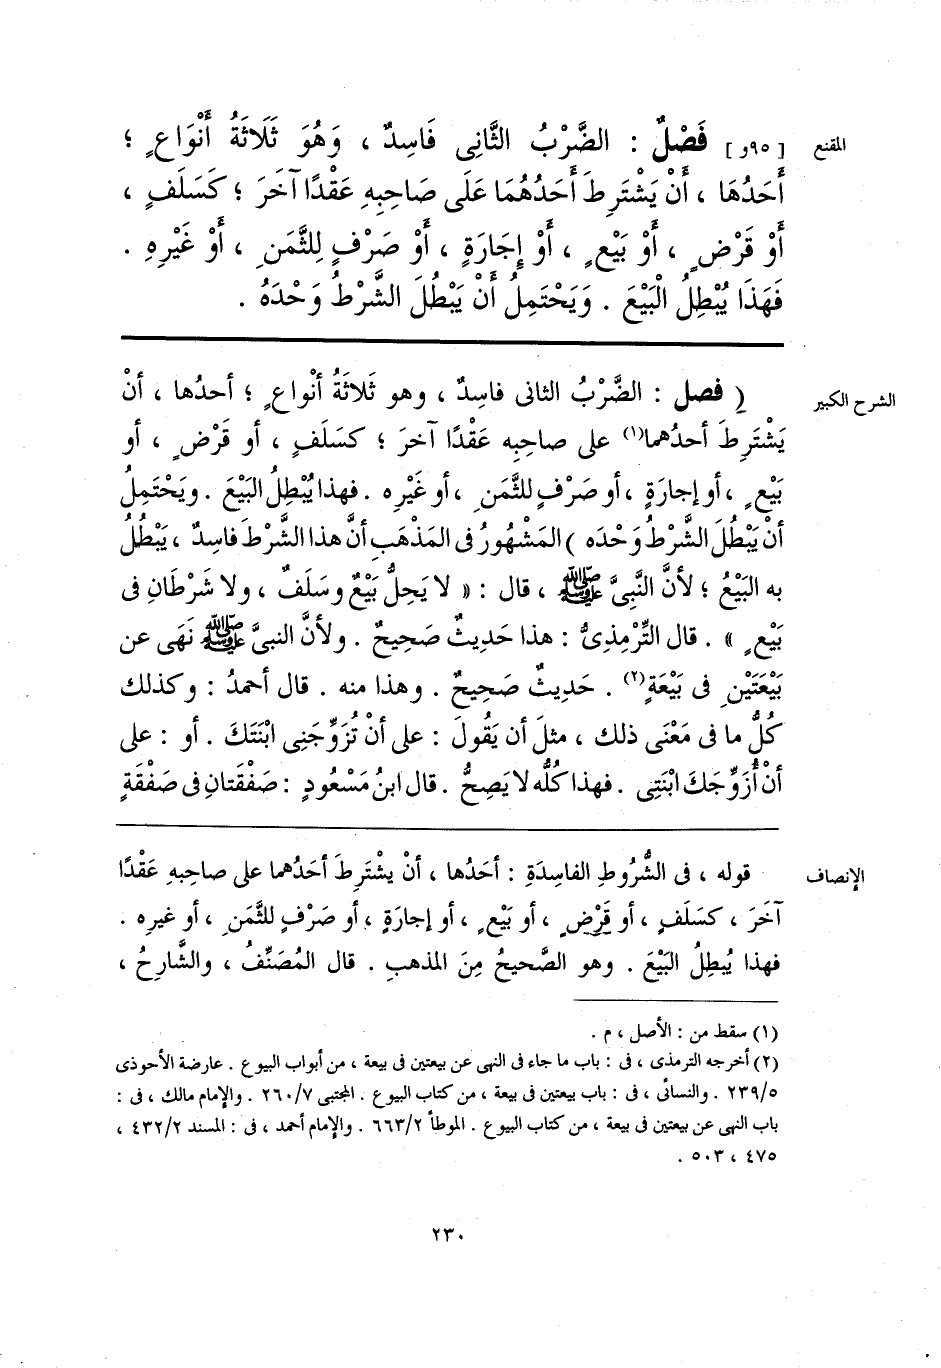 المقنع [ ٩٥و ] فَصْلٌ : الضَّرْبُ الثَّانِى فَاسِدٌ ، وَهُوَ ثَلَاثَةُ أَنْوَاعٍ ؛
أَحَدُهَا ، أَنْ يَشْتَرِطَ أَحَدُهُمَا عَلَى صَاحِبِهِ عَقْدًا آخَرَ ؛ كَسَلَفٍ ،
أَوْ قَرْضٍ ، أَوْ بَيْعٍ ، أَوْ إِجَارَةٍ ، أَوْ صَرْفٍ لِلثَّمَنِ ، أَوْ غَيْرِهِ .
فَهَذَا يُبْطِلُ الْبَيْعَ . وَيَحْتَمِلُ أَنْ يَبْطُلَ الشَّرْطُ وَحْدَهُ .
الشرح الكبير ( فصل : الضَّرْبُ الثانى فاسِدٌ ، وهو ثَلاثَةُ أنْواعٍ ؛ أحدُها ، أنْ
يَشْتَرِطَ أحدُهما(١) على صاحِبِه عَقْدًا آخرَ ؛ كسَلَفٍ ، أو قَرْضٍ ، أو
بَيْعٍ ، أو إجارَةٍ ، أو صَرْفٍ للثَّمَنِ ، أو غَيْرِه . فهذا يُبْطِلُ البَيْعَ . ويَحْتَمِلُ
أنْ يَبْطُلَ الشَّرْطُ وَحْدَه ) المَشْهُورُ فى المَذْهَبِ أنَّ هذا الشَّرْطَ فاسِدٌ ، يَبْطُلُ
به البَيْعُ ؛ لأنَّ النَّبِىَّ ﷺ ، قال : « لا يَحِلُّ بَيْعٌ وسَلَفٌ ، ولا شَرْطَانِ فى
بَيْعٍ » . قال التِّرْمِذِىُّ : هذا حَدِيثٌ صَحِيحٌ . ولأنَّ النبىَّ ﷺ نَهَى عن
بَيْعَتَيْنِ فى بَيْعَةٍ(٢) . حَدِيثٌ صَحِيحٌ . وهذا منه . قال أحمدُ : وكذلك
كُلُّ ما فى مَعْنَى ذلك ، مثلَ أن يَقُولَ : على أنْ تُزَوِّجَنِى ابْنَتَكَ . أو : على
أنْ أُزَوِّجَكَ ابْنَتِى . فهذا كُلُّه لا يَصِحُّ . قال ابنُ مَسْعُودٍ : صَفْقَتانِ فى صَفْقَةٍ
الإنصاف قوله ، فى الشُّروطِ الفاسِدَةِ : أحَدُها ، أن يشْتَرِطَ أحَدُهما على صاحبِهِ عَقْدًا
آخَرَ ، كسَلَفٍ ، أو قَرْضٍ ، أو بَيْعٍ ، أو إجارَةٍ ، أو صَرْفٍ للثَّمَنِ ، أو غيرِه .
فهذا يُبطِلُ البَيْعَ . وهو الصَّحيحُ مِنَ المذهبِ . قال المُصَنِّفُ ، والشَّارِحُ ،
(١) سقط من : الأصل ، م .
(٢) أخرجه الترمذى ، فى : باب ما جاء فى النهى عن بيعتين فى بيعة ، من أبواب البيوع . عارضة الأحوذى
٢٣٩/٥ . والنسائى ، فى : باب بيعتين فى بيعة ، من كتاب البيوع . المجتبى ٢٦٠/٧ . والإمام مالك ، فى :
باب النهى عن بيعتين فى بيعة ، من كتاب البيوع . الموطأ ٦٦٣/٢ . والإمام أحمد ، فى : المسند ٤٣٢/٢ ،
٤٧٥ ، ٥٠٣ .
٢٣٠